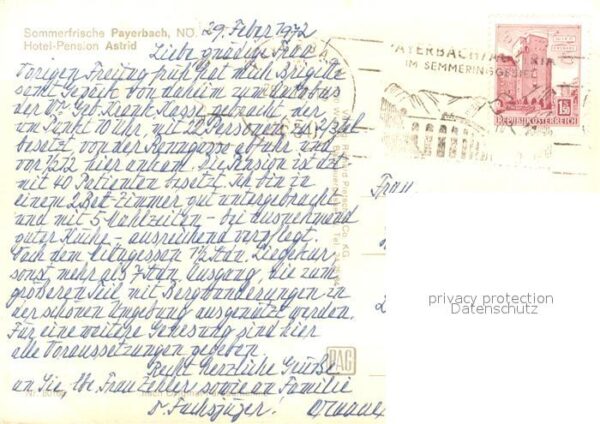 Sommerfrische Payerbach, NÖ.
Hotel-Pension Astrid
29. Feber 1972
Liebe gnädige Frau!
Vorigen Freitag früh hat mich Brigitte
samt Gepäck von daheim zum Autobus
der Wr. Geb. Krank. Kasse gebracht, der
um Punkt 10 Uhr, mit 22 Personen zu 2/3
besetzt von der abfuhr und
vor 1/2 12 hier ankam. Die Pension ist
mit 40 Patienten besetzt. Ich bin in
einem 2 Bett-Zimmer gut untergebracht
und mit 5 Mahlzeiten - bei ausnehmend
guter Küche - ausreichend verpflegt.
Nach dem Mittagessen 1 1/2 Stdn. Liegekur,
sonst mehr als 7 Stdn Ausgang, die zum
größeren Teil mit Bergwanderungen in
der schönen Umgebung ausgenützt werden.
Für eine weitere Genesung sind hier
alle Voraussetzungen gegeben.
Recht herzliche Grüße
an Sie, lbe. Frau sowie an Familie
PAYERBACH
IM SEMMERINGGEBIET
1.50
REPUBLIK ÖSTERREICH
Frau
PAG
privacy protection
Datenschutz